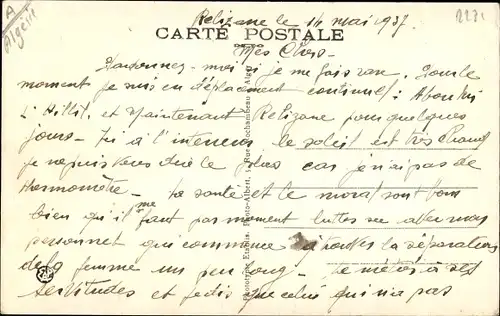 A
Algérie
Relizane le 14 mai 1937
2231
CARTE POSTALE
Mes Chers -
Pardonnez-moi si je me fais rare. Pour le
moment je suis en déplacement continuel : Aboukir
L'Hillil, et Maintenant Relizane pour quelques
jours - Ici à l'intérieur le soleil est très chaud
je ne puis vous dire le plus car je n'ai pas de
thermomètre - La santé et le moral sont bons
bien qu'il me faut par moment lutter
personnel qui commence à trouver la séparation
de la femme un peu long - Le métier a ses
servitudes et je dis que celui qui n'a pas
Phototypie Etablis. Photo-Albert, Rue Rochambeau Alger